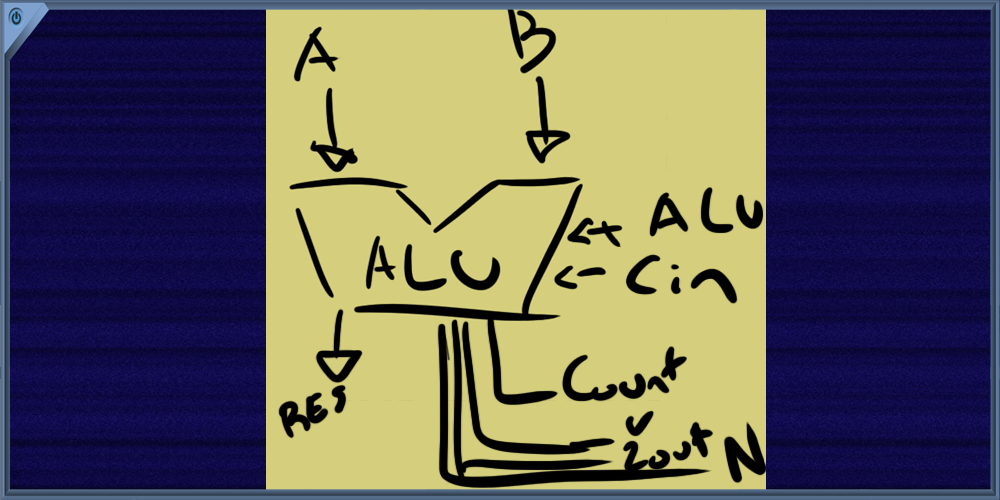 A B
ALU
ALU
Cin
RES
Count
V
Zout N